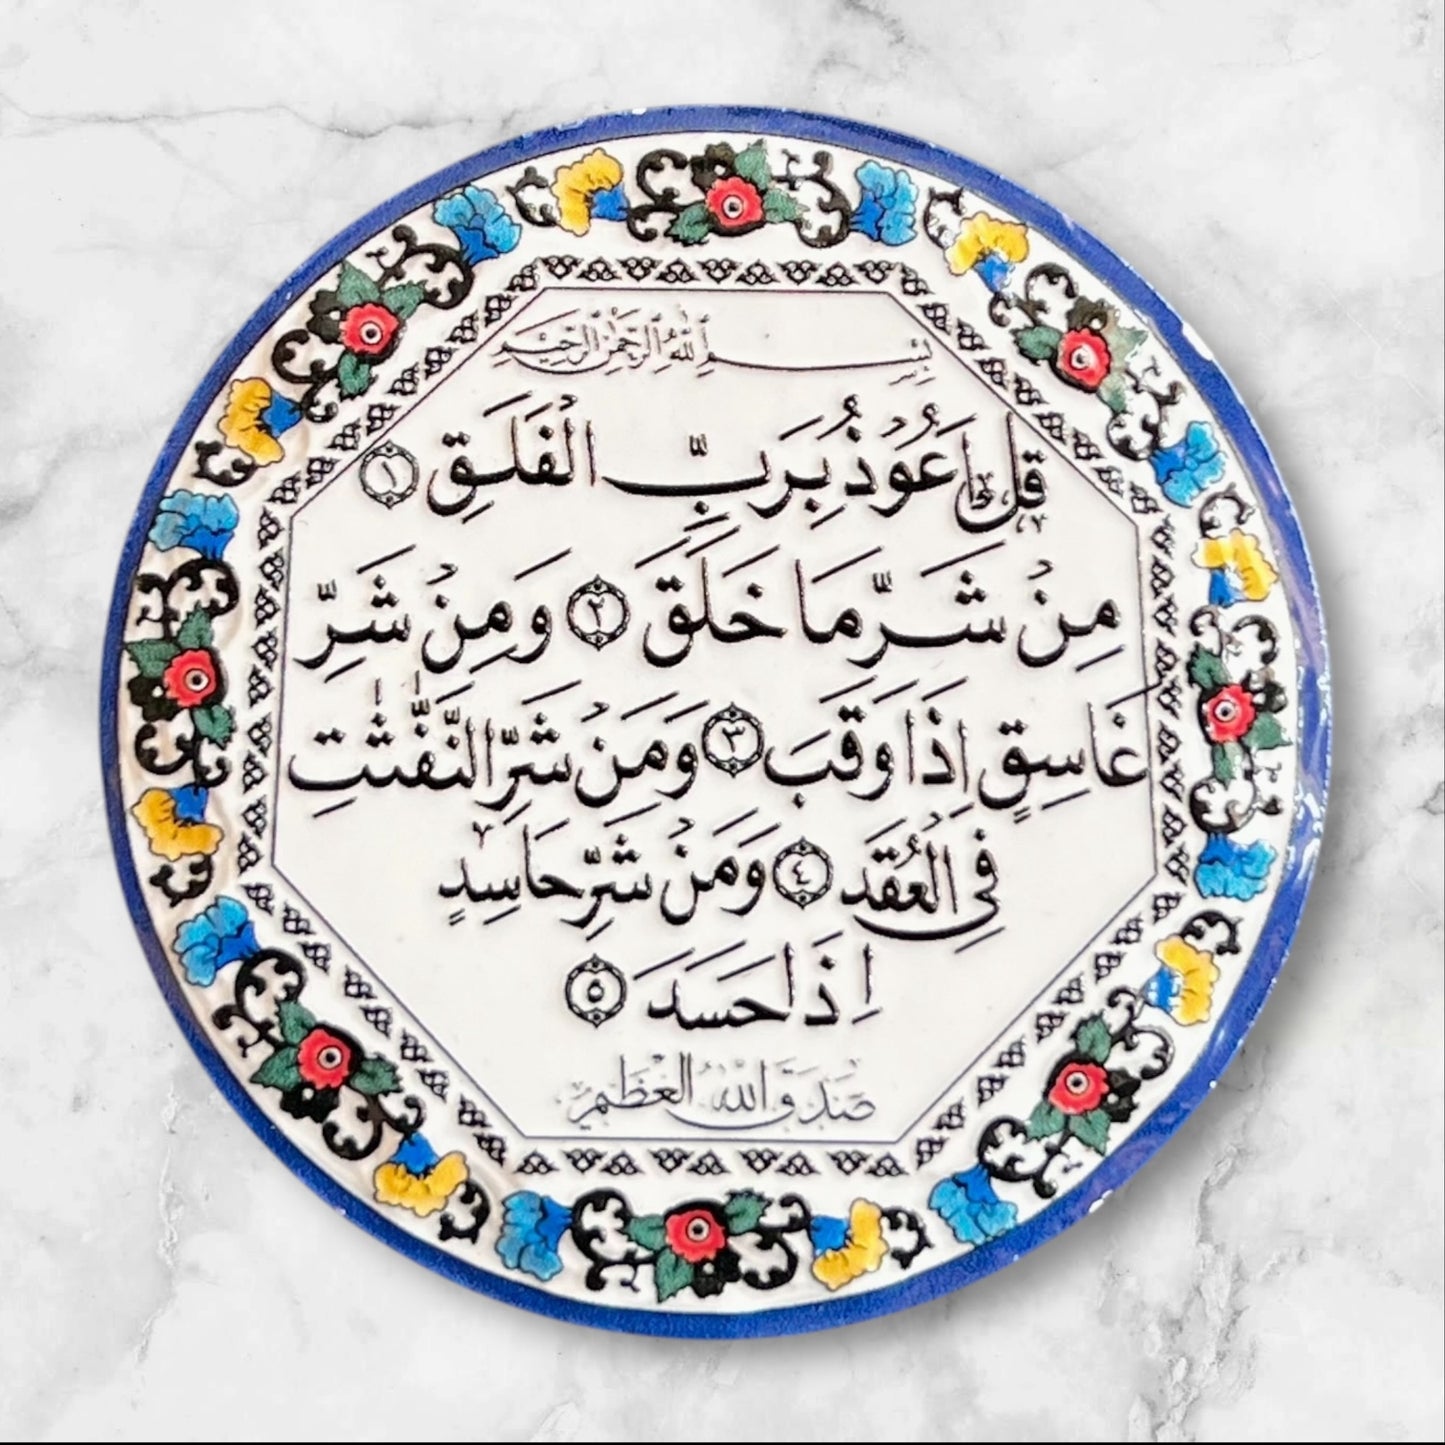 بِسْمِ اللَّهِ الرَّحْمَٰنِ الرَّحِيمِ
قُلْ أَعُوذُ بِرَبِّ الْفَلَقِ ١
مِنْ شَرِّ مَا خَلَقَ ٢ وَمِنْ شَرِّ
غَاسِقٍ إِذَا وَقَبَ ٣ وَمِنْ شَرِّ النَّفَّٰثَٰتِ
فِي الْعُقَدِ ٤ وَمِنْ شَرِّ حَاسِدٍ
إِذَا حَسَدَ ٥
صَدَقَ اللهُ الْعَظِيمُ